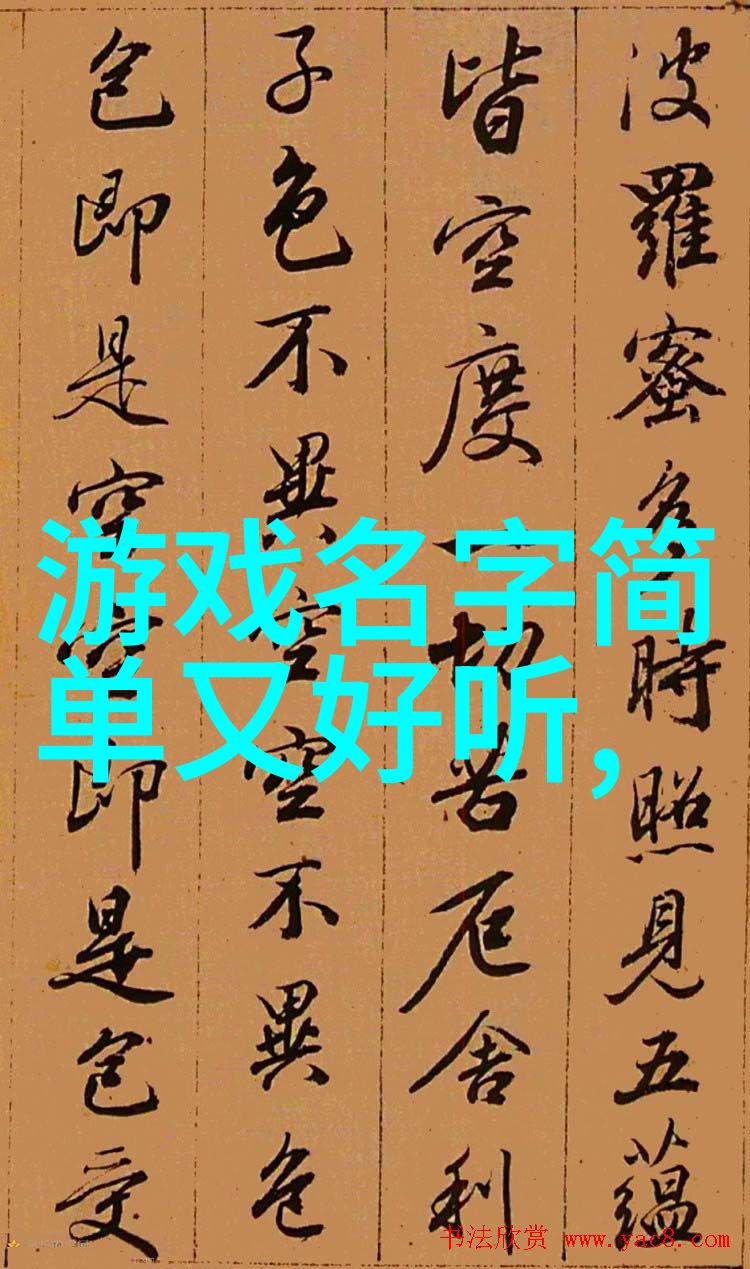 波羅蜜多時照見五蘊
皆空度一切苦厄舍利
子色不異空空不異色
色即是空空即是色受
游戏名字简
单又好听,
书法欣赏 www.yac8.com